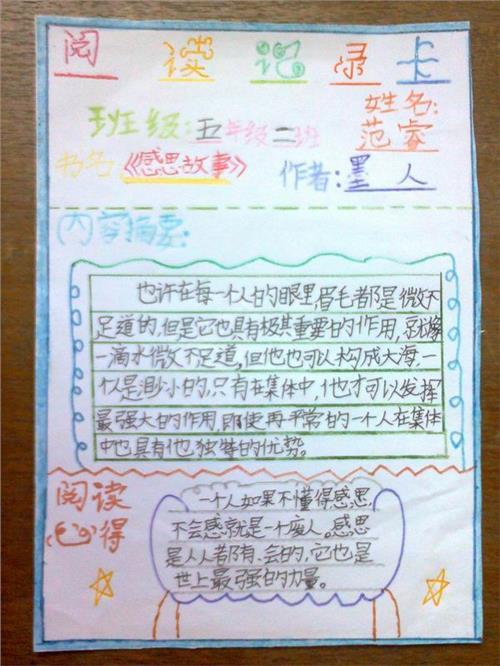 阅读记录卡
姓名:
班级:五年级二班 范睿
书名:《感思故事》 作者:墨人
内容摘要:
也许在每一个人的眼里,眉毛都是微不
足道的,但是它也具有极其重要的作用,就像
一滴水微不足道,但他也可以构成大海,一
人是渺小的,只有在集体中,他才可以发挥
最强大的作用,即使再平常的一个人在集体
中也具有他独特的优势。
阅读
心得
一个人如果不懂得感思,
不会感就是一个废人。感思
是人人者都有、会的,它也是
世上最强的的力量。